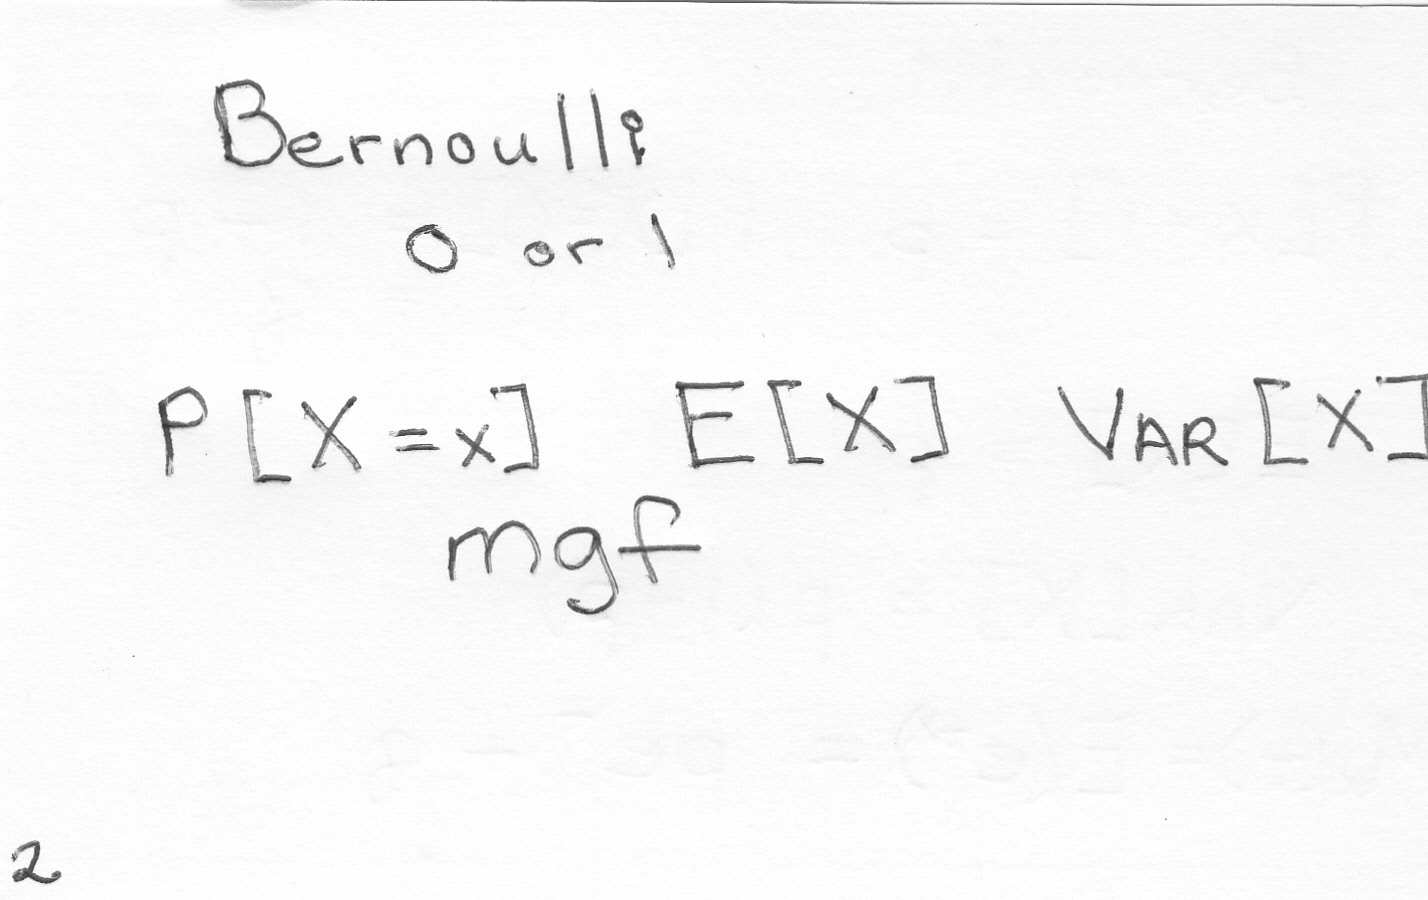 Bernoulli
0 or 1
P[X=x] E[X] VAR[X]
mgf
2